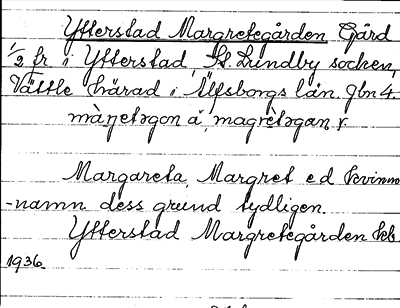 Ytterstad Margretegården Gård
1/2 fr i Ytterstad, St. Lundby socken,
Vättle härad i Älfsborgs län. Jbn 4.
màŋetəgon ä, magrètəgan, y.
Margareta, Margret e d kvinno
-namn dess grund tydligen.
Ytterstad Margretegården kb
1936.